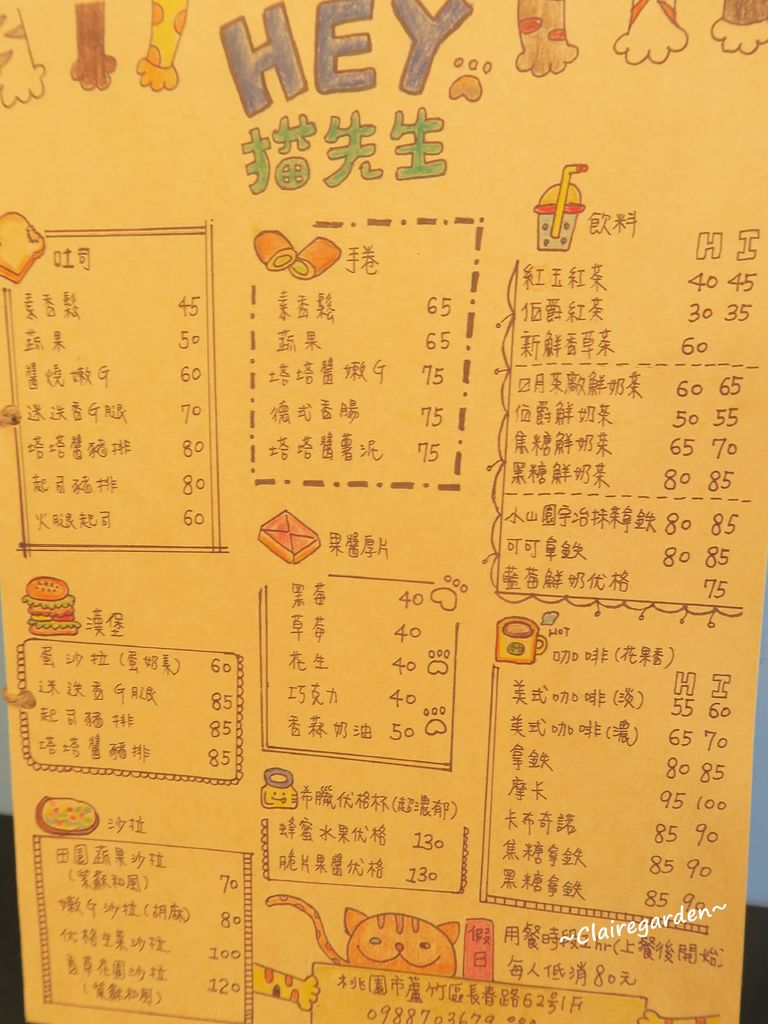 HEY
貓先生
吐司
素香鬆 45
蔬果 50
醬燒嫩G 60
迷迭香G腿 70
塔塔醬豬排 80
起司豬排 80
火腿起司 60
手卷
素香鬆 65
蔬果 65
塔塔醬嫩G 75
德式香腸 75
塔塔醬薯泥 75
飲料
H I
紅玉紅茶 40 45
伯爵紅茶 30 35
新鮮香草茶 60
日月茶廠鮮奶茶 60 65
伯爵鮮奶茶 50 55
焦糖鮮奶茶 65 70
黑糖鮮奶茶 80 85
小山園宇治抹茶拿鉄 80 85
可可拿鉄 80 85
藍莓鮮奶优格 75
漢堡
蛋沙拉(蛋奶素) 60
迷迭香G腿 85
起司豬排 85
塔塔醬豬排 85
果醬厚片
黑莓 40
草莓 40
花生 40
巧克力 40
香蒜奶油 50
HOT
咖啡(花果香)
H I
美式咖啡(淡) 55 60
美式咖啡(濃) 65 70
拿鉄 80 85
摩卡 95 100
卡布奇諾 85 90
焦糖拿鉄 85 90
黑糖拿鉄 85 90
沙拉
田園蔬果沙拉
(紫蘇和風) 70
嫩G沙拉(胡麻) 80
优格生菜沙拉 100
香草花園沙拉
(紫蘇和風) 120
希臘优格杯(超濃郁)
蜂蜜水果优格 130
脆片果醬优格 130
假日
用餐時段 hr(上餐後開始
每人低消80元
~Clairegarden~
桃園市蘆竹區長春路62号1F
0988703679